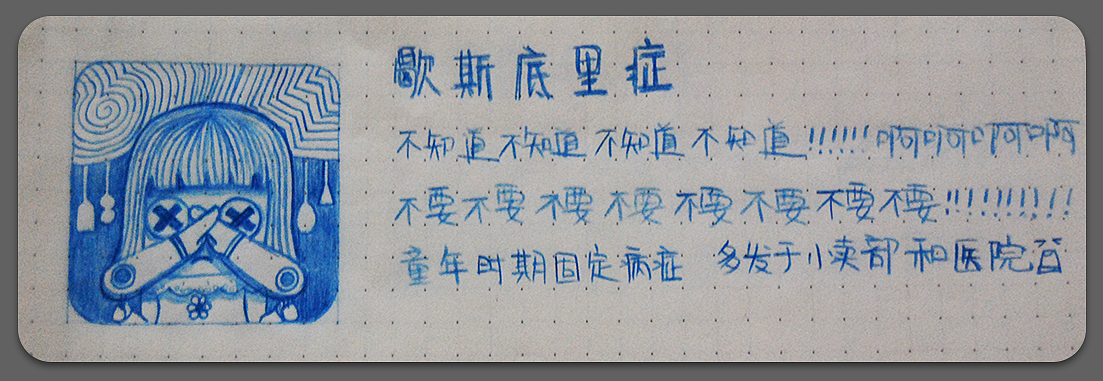 歇斯底里症
不知道不知道 不知道 不知道!!!!!! 啊啊啊啊
不要不要 不要 不要 不要 不要 不要不要!!!!!!!!!
童年时期固定病症 多发于小卖部和医院